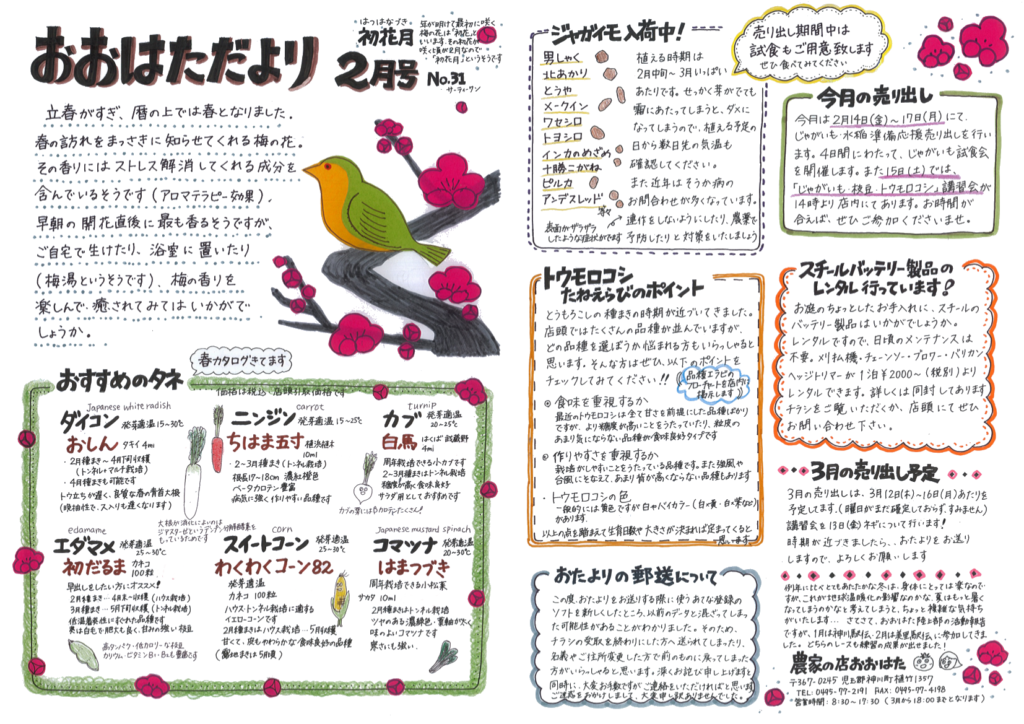 おおはただより 2月号 No.31
サーティーワン
はつはなづき
初花月
年が明けて最初に咲く
梅の花は"初花"と
いいます。その初花が
咲く頃が2月なので
"初花月"というそうです
立春がすぎ、暦の上では春となりました。
春の訪れをまっさきに知らせてくれる梅の花。
その香りにはストレス解消してくれる成分を
含んでいるそうです(アロマテラピー効果)。
早朝の開花直後に最も香るそうですが、
ご自宅で生けたり、浴室に置いたり
(梅湯というそうです)、梅の香りを
楽しんで癒されてみてはいかがで
しょうか。
春カタログきてます
おすすめのタネ
価格は税込・店頭引取価格です
Japanese white radish
ダイコン 発芽適温15~30℃
おしん タキイ 4ml
・2月種まき~4月下旬収穫
(トンネル+マルチ栽培)
・4月種まきも可能です
トウ立ちが遅く、良質な春の青首大根
(晩抽性で、ス入りも遅くなります)
大根が消化によいのは
ジアスターゼというデンプン分解酵素を
もっているためです
carrot
ニンジン 発芽適温15~25℃
ちはま五寸 横浜植木
10ml
・2~3月種まき(トンネル栽培)
根長17~18cm 濃紅橙色
ベータカロテン豊富
病気に強く作りやすい品種です
turnip
カブ 発芽適温
20~25℃
白馬 はくば 武蔵野
4ml
周年栽培できる小カブです
2~3月種まきはトンネル栽培
糖度が高く食味良好
サラダ用としておすすめです
カブの葉にはβカロテンたくさん!
edamame
エダマメ 発芽適温
25~30℃
初だるま カネコ
100粒
早出しをしたい方にオススメ!
2月種まき…4月末~収穫(ハウス栽培)
3月種まき…5月下旬収穫(トンネル栽培)
低温着莢性にすぐれた品種です
莢は白毛で肥大も良く、甘みの強い枝豆
高タンパク・低カロリーな枝豆
カリウム・ビタミンB1・B2も豊富です
corn
スイートコーン 発芽適温
25~30℃
わくわくコーン82
発芽適温
カネコ 100粒
ハウストンネル栽培に適する
イエローコーンです
2月種まきはハウス栽培…5月収穫
甘くて、皮もやわらかな食味良好の品種
(露地まきは5月頃)
Japanese mustard spinach
コマツナ 発芽適温
20~30℃
はまつづき
周年栽培できる小松菜
サカタ 10ml
2月種まきはトンネル栽培
ツヤのある濃緑色、葉軸が太く
味のよいコマツナです
寒さにも強い。
ジャガイモ入荷中!
男しゃく
北あかり
とうや
メークイン
ワセシロ
トヨシロ
インカのめざめ
十勝こがね
ピルカ
アンデスレッド
等々
植える時期は
2月中旬~3月いっぱい
あたりです。せっかく芽がでても
霜にあたってしまうと、ダメに
なってしまうので、植える予定の
日から数日先の気温も
確認してください。
また近年はそうか病の
お問合わせが多くなっています。
連作をしないようにしたり、農薬で
予防したりと対策をいたしましょう
表面がザラザラ
したような症状がでます
売り出し期間中は
試食もご用意致します
ぜひ食べてみてください
今月の売り出し
今月は2月14日(金)~17日(月)にて、
じゃがいも・水稲準備応援売り出しを行い
ます。4日間にわたって、じゃがいも試食会
を開催します。また15日(土)では、
「じゃがいも・枝豆・トウモロコシ」講習会が
14時より店内にてあります。お時間が
合えば、ぜひご参加くださいませ。
トウモロコシ
たねえらびのポイント
とうもろこしの種まきの時期が近づいてきました。
店頭ではたくさんの品種が並んでいますが、
どの品種を選ぼうか悩まれる方もいらっしゃると
思います。そんな方はぜひ、以下のポイントを
チェックしてみてください!!
品種エラビの
フローチャートを店内に
掲示します♪
◎食味を重視するか
最近のトウモロコシは全て甘さを前提にした品種ばかり
ですが、より糖度が高いことをうたっていたり、粒皮の
あまり気にならない品種が食味良好タイプです
◎作りやすさを重視するか
栽培がしやすいことをうたっている品種です。また強風や
台風にそなえて、あまり背が高くならない品種もあります
・トウモロコシの色
一般的には黄色ですが白やバイカラー(白・黄・白・紫など)
があります
以上の点を踏まえて生育日数や大きさが決まれば定まってくると
思います。
スチールバッテリー製品の
レンタル行っています!
お庭のちょっとしたお手入れに、スチールの
バッテリー製品はいかがでしょうか。
レンタルですので、日頃のメンテナンスは
不要。刈払機・チェーンソー・ブロワー・バリカン
ヘッジトリマーが1泊¥2000~(税別)より
レンタルできます。詳しくは同封してあります
チラシをご覧いただくか、店頭にてぜひ
お問い合わせ下さい。
3月の売り出し予定
3月の売り出しは、3月12日(木)~16日(月)あたりを
予定してます。(曜日がまだ確定しておらず、すみません)
講習会を13日(金)ネギについて行います!
時期が近づきましたら、おたよりをお送り
しますので、よろしくお願いします
おたよりの郵送について
この度、おたよりをお送りする際に使うあて名登録の
ソフトを新しくしたところ、以前のデータと混ざってしまっ
た可能性があることがわかりました。そのため、
チラシの受取を終わりにした方へ送られてしまったり、
名義やご住所変更した方で前のものに戻ってしまった
方がいらっしゃると思います。深くお詫び申し上げますと
同時に、大変お手数ですがご連絡をいただければと思います
ご迷惑をおかけしまして、大変申し訳ありませんでした。
昨年に比べるとあたたかな冬は、身体にとっては楽なので
すが、これが地球温暖化の影響なのかな、夏はもっと暑く
なってしまうのかなと考えてしまうと、ちょっと複雑な気持ち
がいたします… さてさて、おおはた陸上部の活動報告
ですが、1月は神川駅伝、2月は美里駅伝に参加してきまし
た。どちらのレースも練習の成果が出せました!
農家の店おおはた
〒367-0245 児玉郡神川町植竹1357
TEL:0495-77-2191 FAX:0495-77-4198
営業時間:8:30~17:30(3月から18:00までとなります)